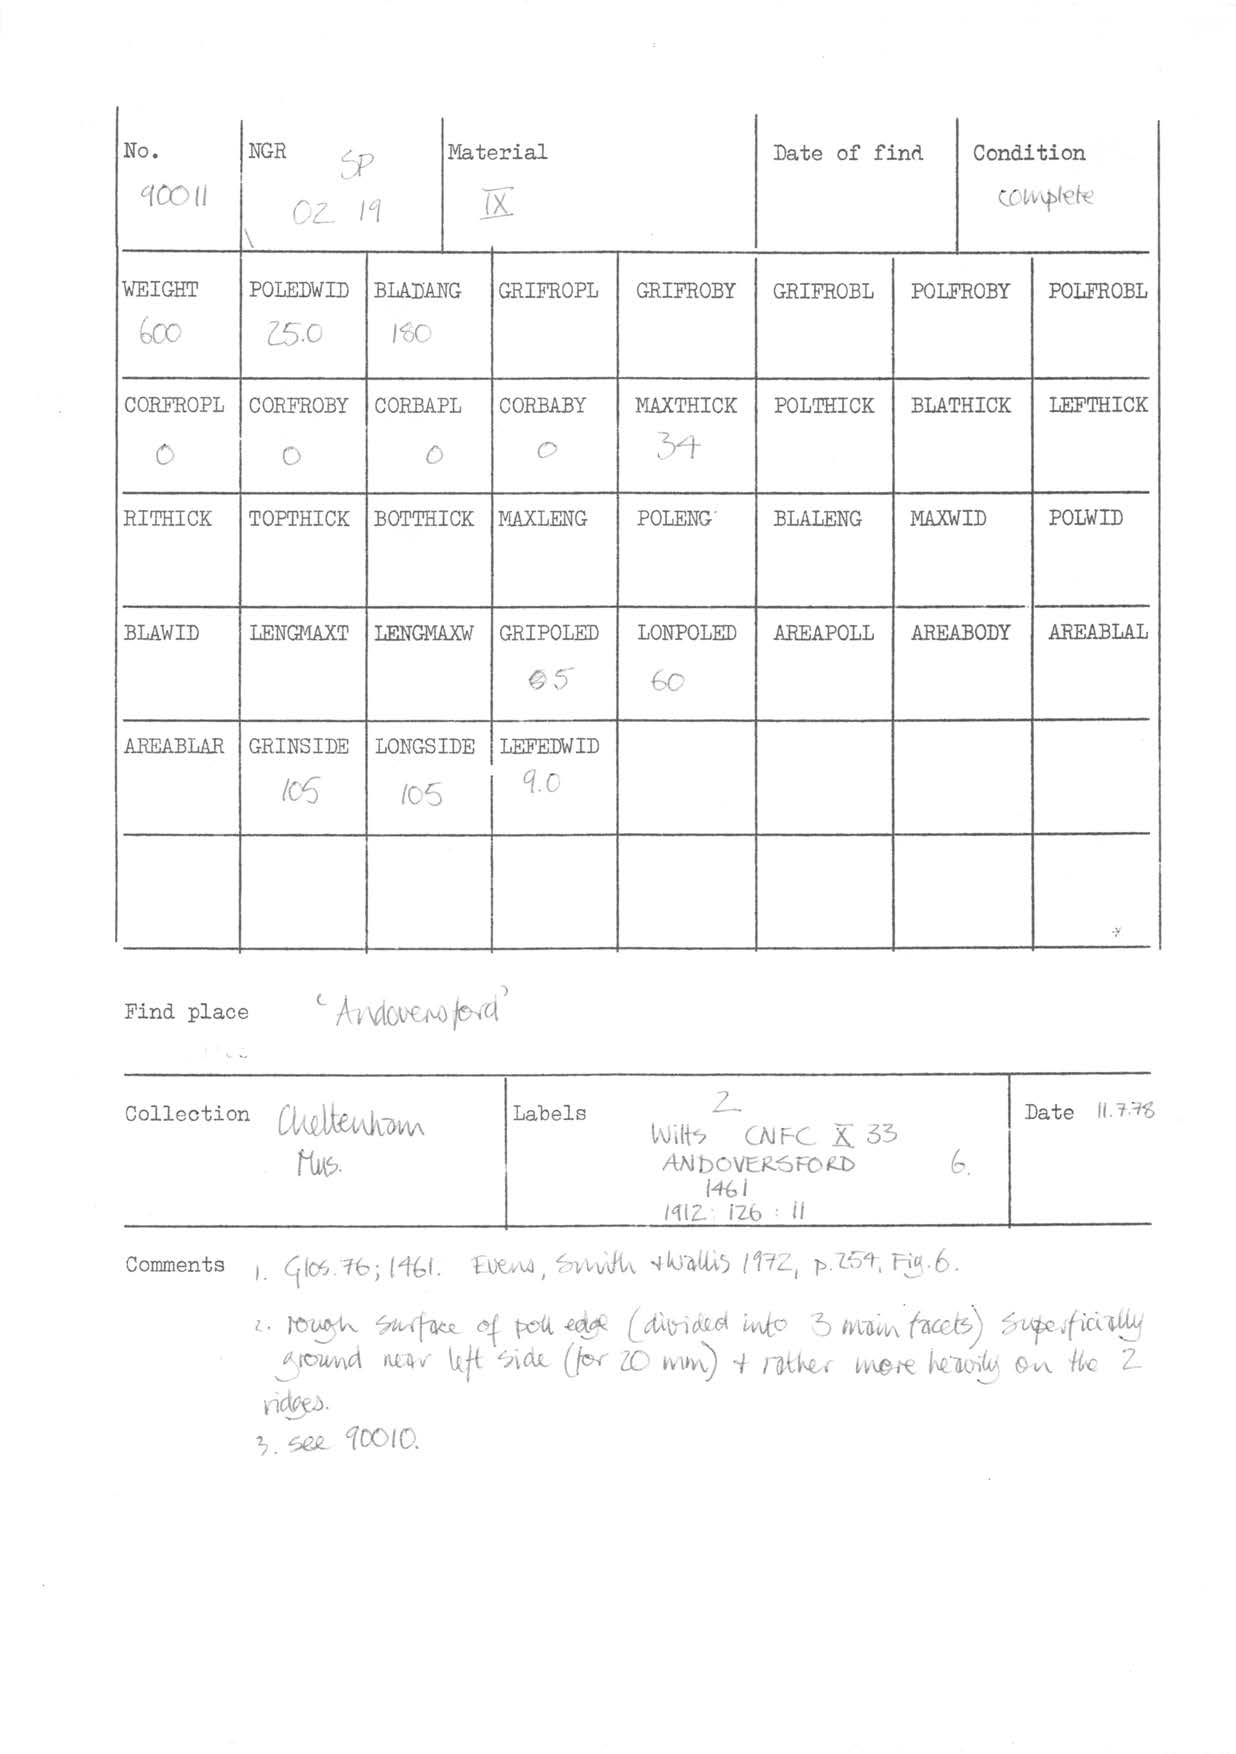 No. NGR SP Material Date of find Condition
90011 02 19 IX complete
WEIGHT POLEDWID BLADANG GRIFROPL GRIFROBY GRIFROBL POLFROBY POLFROBL
600 25.0 180
CORFROPL CORFROBY CORBAPL CORBABY MAXTHICK POLTHICK BLATHICK LEFTHICK
0 0 0 0 34
RITHICK TOPTHICK BOTTHICK MAXLENG POLENG BLALENG MAXWID POLWID
BLAWID LENGMAXT LENGMAXW GRIPOLED LONPOLED AREAPOLL AREABODY AREABLAL
5 60
AREABLAR GRINSIDE LONGSIDE LEFEDWID
105 105 9.0
Find place 'Andoversford'
Collection Cheltenham
Mus.
Labels 2
Wilts CNFC X 33
ANDOVERSFORD 6.
1461
1912: 126 : 11
Date 11.7.78
Comments 1. Glos.76; 1461. Evens, Smith + Wallis 1972, p.254, Fig.6.
2. rough surface of poll edge (divided into 3 main facets) superficially
ground near left side (for 20 mm) + rather more heavily on the 2
ridges.
3. see 90010.